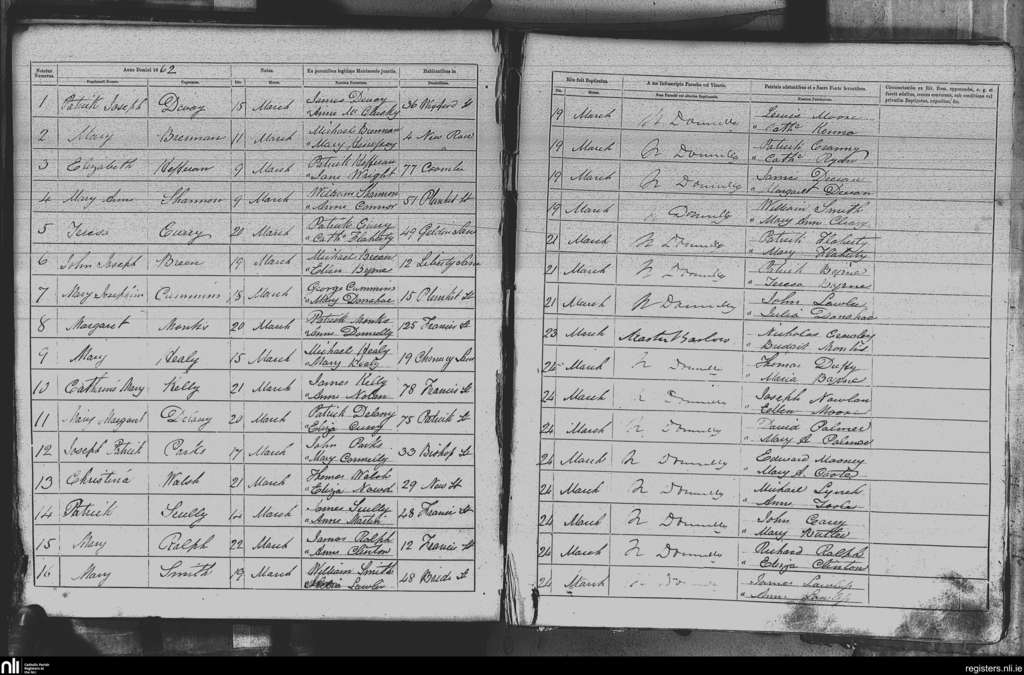 Anno Domini 1862
Natus.
Ex parentibus legitimo Matrimonio junctis.
Habitantibus in
Die.
Mense.
1 Patrick Joseph Devoy 15 March James Devoy 36 Wexford St
2 Mary Brennan 11 March Michael Brennan 4 New Row
" Mary
3 Elizabeth Heffernan 9 March Patrick Heffernan 77 Coombe
" Jane Wright
4 Mary Anne Shannon 9 March William Shannon 51 Plunket St
" Anne Connor
5 Teresa Curry 20 March Patrick Curry 49 Golden Lane
" Cathe Flaherty
6 John Joseph Breen 19 March Michael Breen 12 Liberty Lane
" Ellen Byrne
7 Mary Josephine Cummins 18 March George Cummins 15 Plunket St
" Mary Donahoe
8 Margaret Monks 20 March Patrick Monks 125 Francis St
" Anne Donnelly
9 Mary Healy 15 March Michael Healy 19 Chancery Lane
" Mary Healy
10 Catherine Mary Kelly 21 March James Kelly 78 Francis St
" Ann Nolan
11 Mary Margaret Delany 20 March Patrick Delany 75 Patrick St
" Eliza Curry
12 Joseph Patrick Parks 17 March John Parks 33 Bishop St
" Mary Connelly
13 Christina Walsh 21 March Thomas Walsh 29 New St
" Eliza
14 Patrick Scully 14 March James Scully 48 Francis St
" Anne Martin
15 Mary Ralph 22 March James Ralph 12 Francis St
" Ann Clinton
16 Mary Smith 19 March William Smith 48 Brides St
Lawler
Die.
Mense.
19 March N Donnelly Lewis Moore
" Cathe Kenna
19 March N Donnelly Patrick
" Cathe Ryan
19 March N Donnelly James
" Margaret
19 March N Donnelly William Smith
" Mary Ann Cleary
21 March N Donnelly Patrick Flaherty
" Mary Flaherty
21 March N Donnelly Patrick Byrne
" Teresa Byrne
21 March N Donnelly John Lawler
" Julia Donohoe
23 March Master Barlow Nicholas Crawley
" Bridget Monks
24 March N Donnelly Thomas Duffy
" Maria Byrne
24 March N Donnelly Joseph Nowlan
" Ellen Moore
24 March N Donnelly David Palmer
" Mary A Palmer
24 March N Donnelly Edward Mooney
" Mary A.
24 March N Donnelly Michael Lynch
" Anne Toole
24 March N Donnelly John Garry
" Mary Butler
24 March N Donnelly Richard Ralph
" Eliza Clinton
24 March N Donnelly James Lawler
" Anne Lawler
nli Catholic Parish Registers at the NLI
registers.nli.ie